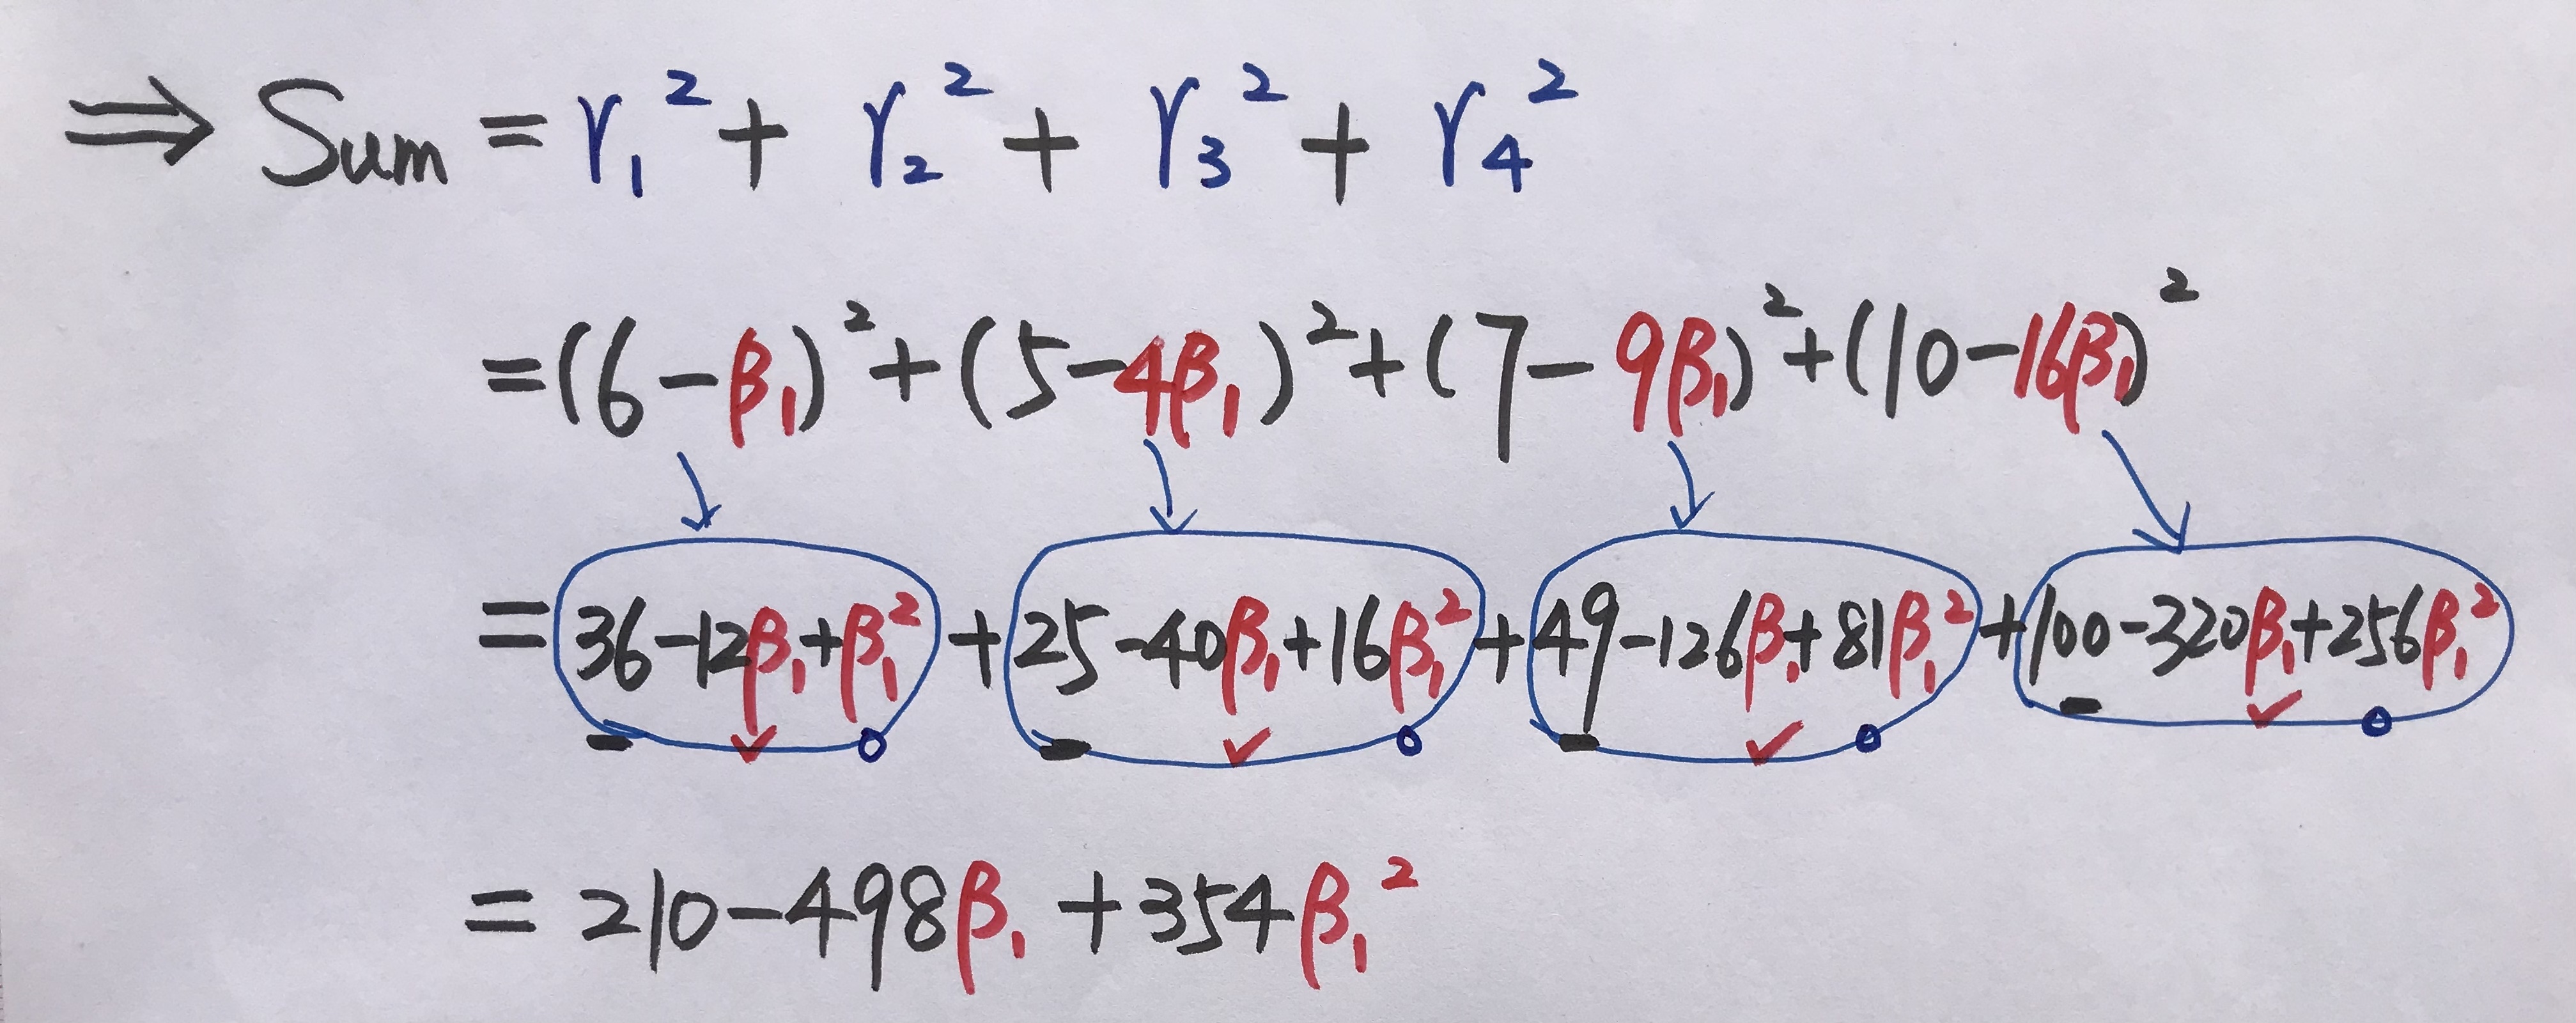 ⇒ Sum = r₁² + r₂² + r₃² + r₄²
=(6-β₁)²+(5-4β₁)²+(7-9β₁)²+(10-16β₁)²
=36-12β₁+β₁²+25-40β₁+16β₁²+49-126β₁+81β₁²+100-320β₁+256β₁²
= 210-498β₁+354β₁²